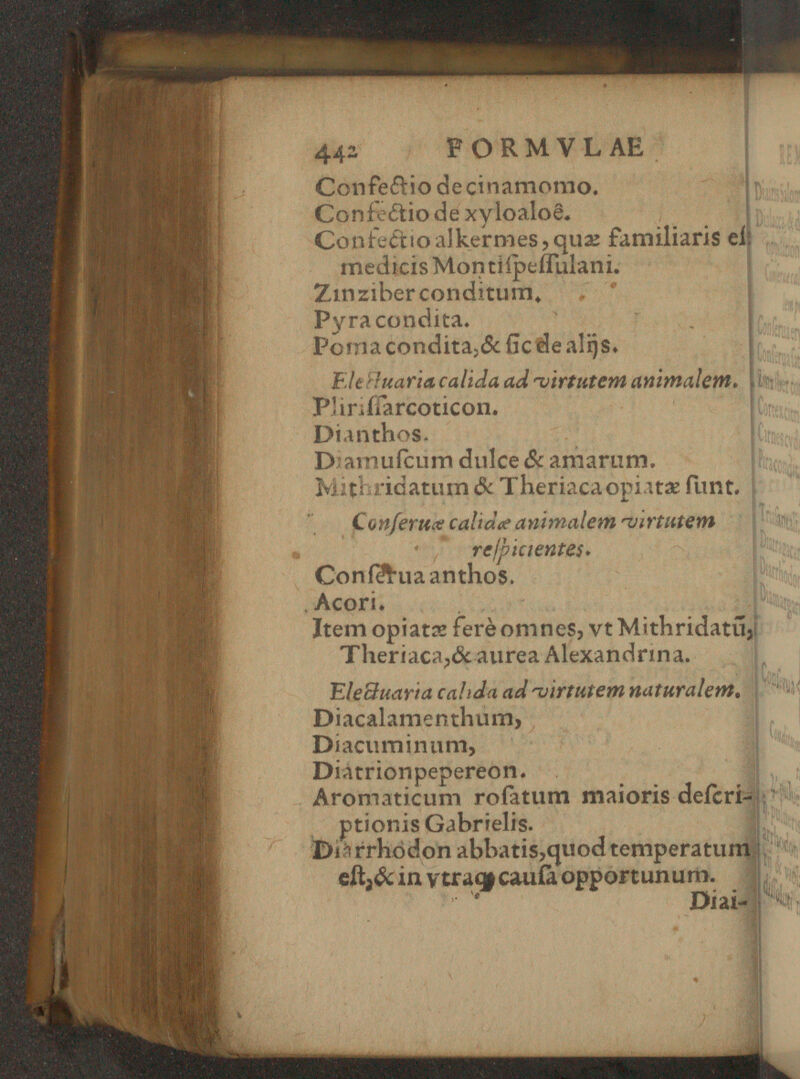 442 FORMVLAE
Confectio de cinamomo.
Confectio de xyloaloë.
Confectio alkermes, quæ familiaris est
medicis Montiſpeſſulani.
Zinziber conditum,
Pyra condita.
Poma condita, & ſic de alijs.
Electuaria calida ad virtutem animalem.
Pliriſſarcoticon.
Dianthos.
Diamuſcum dulce & amarum.
Mithridatum & Theriaca opiatæ ſunt.
Conſeruæ calidæ animalem virtutem
reſpicientes.
Conſerua anthos.
Acori.
Item opiatæ ferè omnes, vt Mithridatū,
Theriaca, & aurea Alexandrina.
Electuaria calida ad virtutem naturalem.
Diacalamenthum,
Diacuminum,
Diàtrionpepereon.
Aromaticum roſatum maioris deſcri-
ptionis Gabrielis.
Diarrhódon abbatis, quod temperatum
eſt, & in vtraq; cauſa opportunum.
Diai-